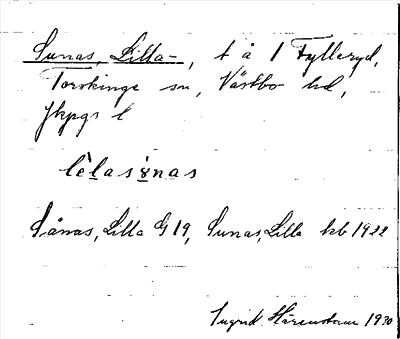 Sunas, Lilla-, t å 1 Fylleryd,
Torskinge sn, Västbo hd,
Jkpgs l
lèlas⁠nas
Sånas, Lilla G 19, Sunas, Lilla kb 1922
Ingrid Härenstam 1930